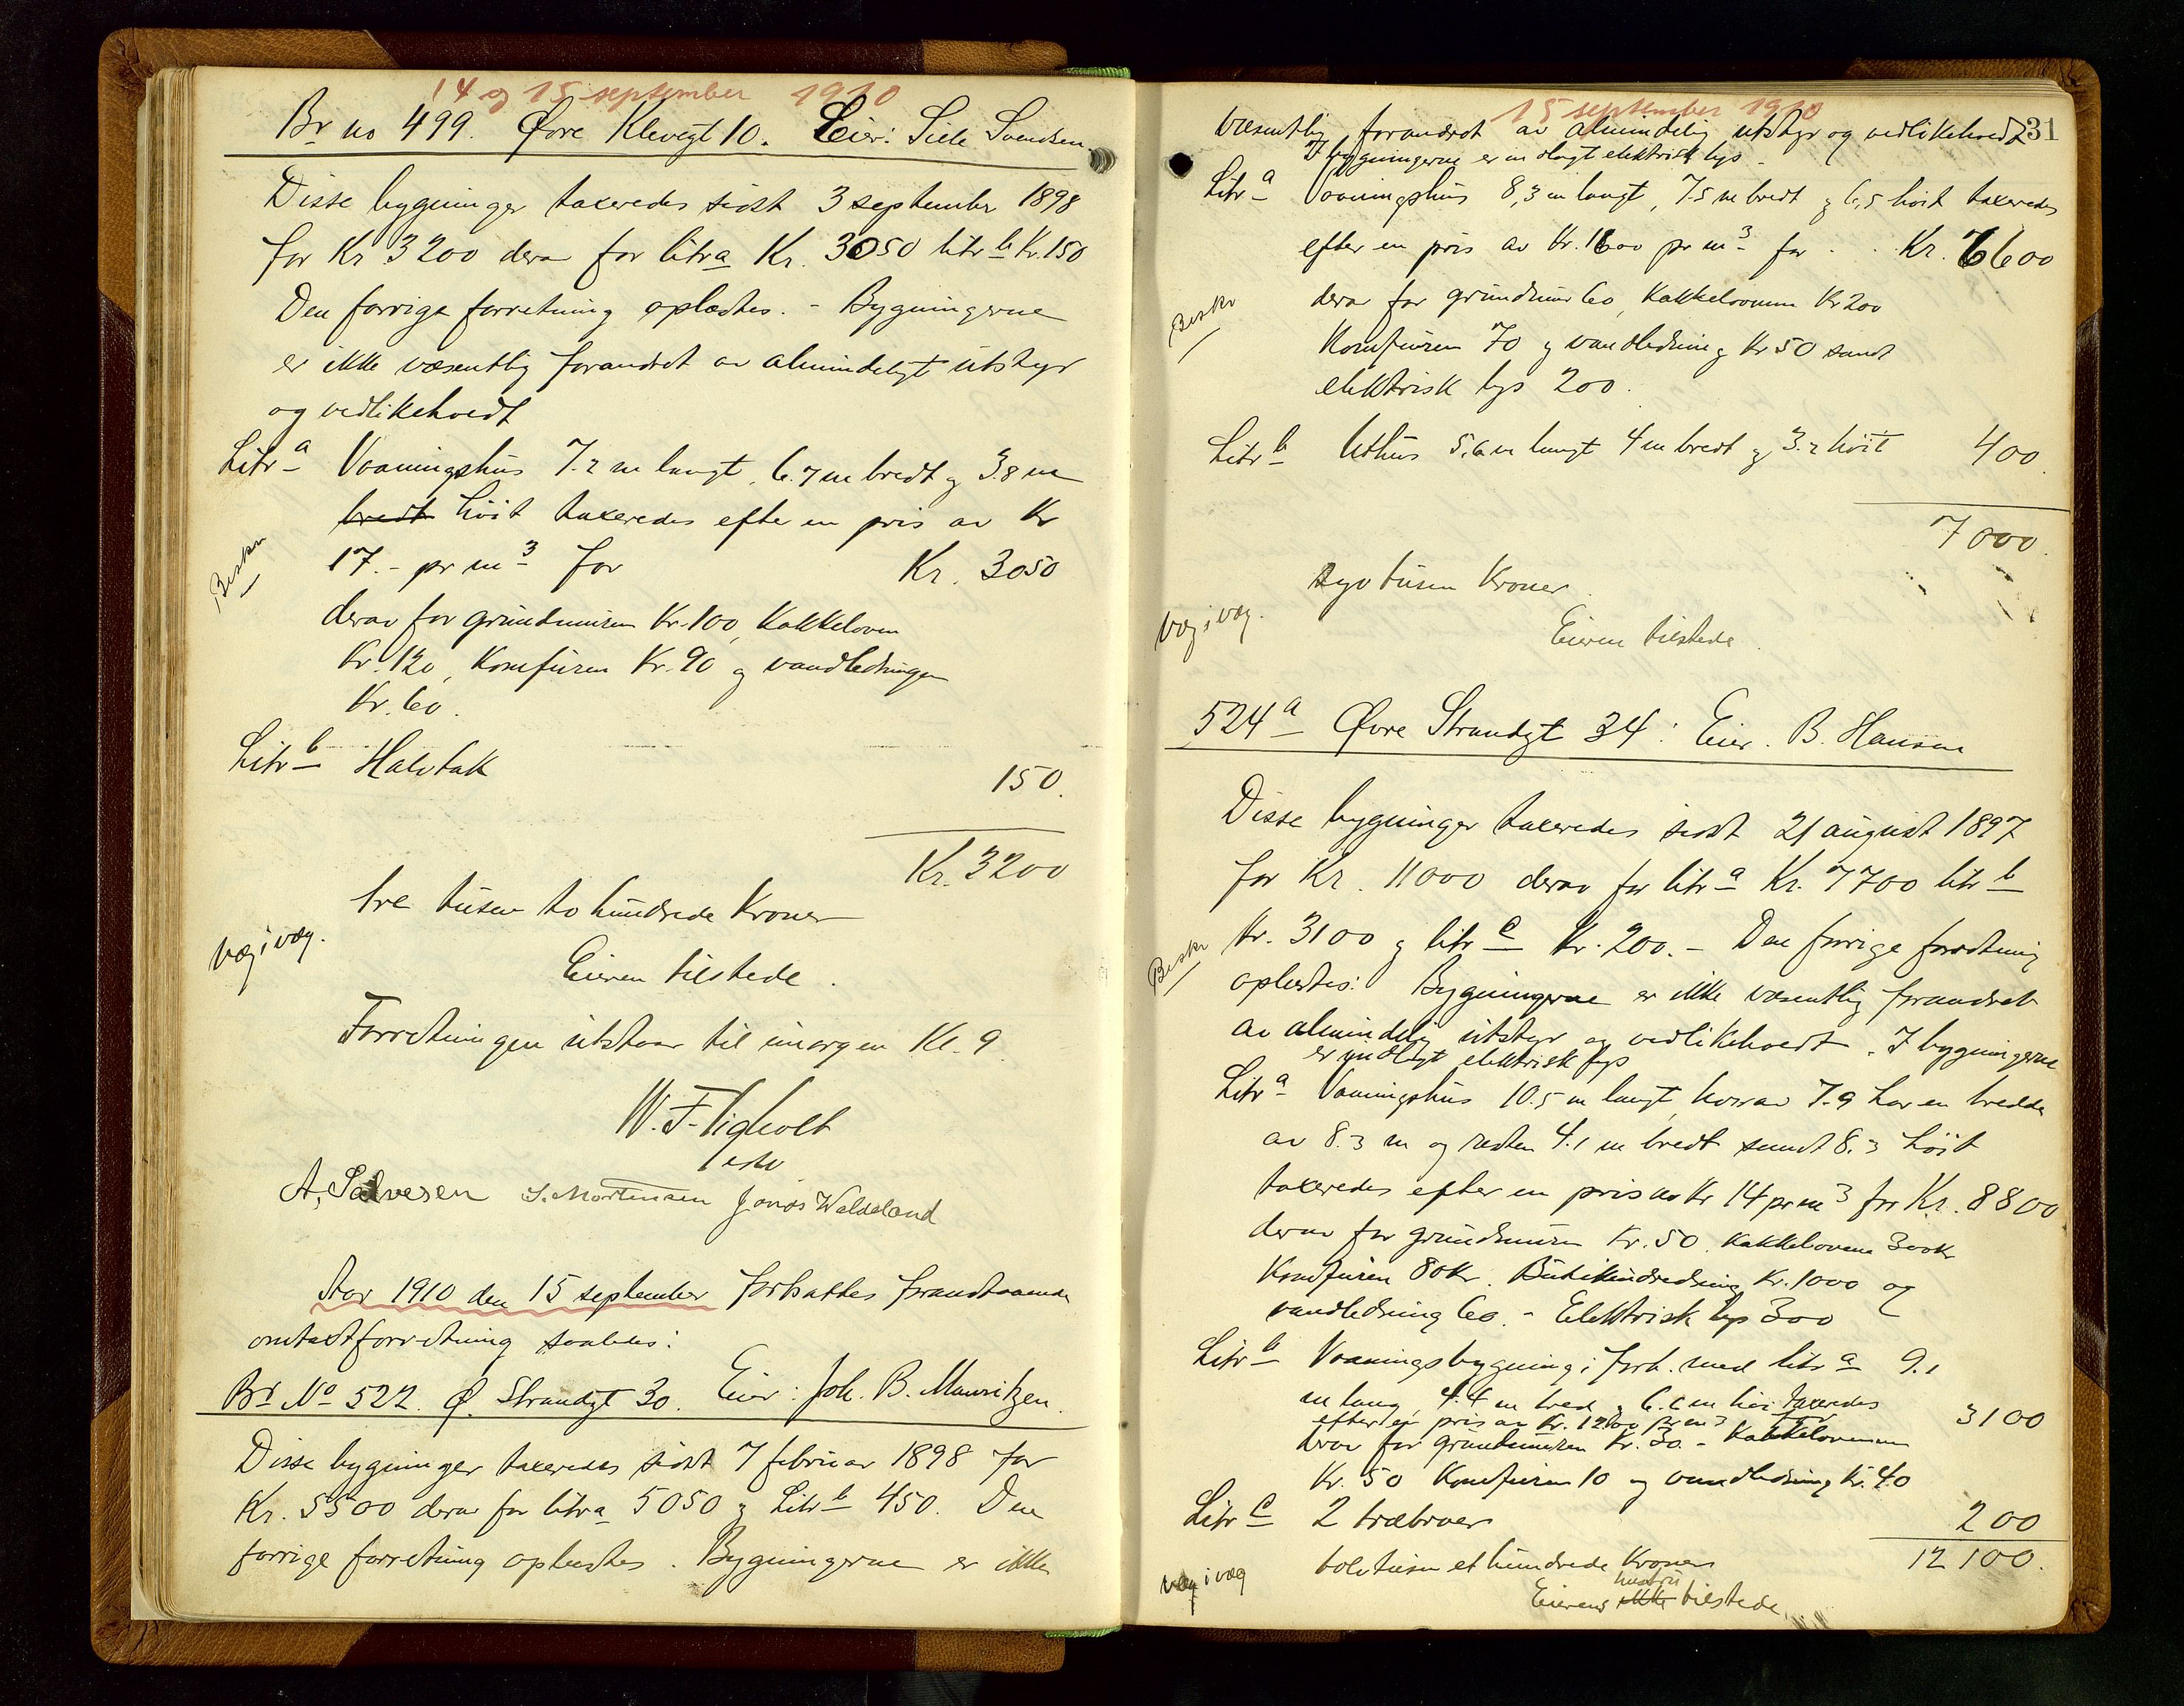 14 og 15 september 1910
Br no 499. Øvre Klevegt 10. Eier: Svendsen
Disse bygninger taxeredes sidst 3 september 1898
for Kr 3200 derav for litra Kr. 3050 litr b Kr. 150
Den forrige forretning oplæstes. - Bygningerne
er ikke væsentlig forandret av almindeligt utstyr
og vedlikeholdt
Litr a Vaaningshus 7.2 m langt, 6.7 m bredt og 3.8 m
bredt höit taxeredes efter en pris av Kr
Beskr
17.- pr m3 for Kr. 3050
derav for grundmuren Kr. 100, Kakkeloven
Kr. 120, Komfuren Kr. 90 og vandledningen
Kr. 60.
Litr b Halvtak 150.
Kr. 3200
tre tusen to hundrede Kroner
væg i væg.
Eieren tilstede.
Forretningen utstaar til imorgen Kl. 9.
W. F.
A. Salvesen S. Mortensen Jonas Waldeland
Aar 1910 den 15 september fortsattes foranstaaende
omtaxtforretning saaledes:
Br No 522. Ø. Strandgt 30. Eier: Joh. B. Mauritzen.
Disse bygninger taxeredes sidst 7 februar 1898 for
Kr. 5500 derav for litra 5050 og Litr b 450. Den
forrige forretning oplæstes. Bygningerne er ikke
15 september 1910
væsentlig forandret av almindelig utstyr og vedlikeholdt 231
I bygningerne er indlagt elektrisk lys.
Litr a Vaaningshus 8,3 m langt, 7.5 m bredt og 6,5 höit taxeredes
efter en pris av Kr. 1600 pr m3 for Kr. 6600
Beskr
derav for grundmur 60, Kakkelovnene Kr 200
Komfuren 70 og vandledning Kr 50 samt
elektrisk lys 200.
Litr b Uthus 5.6 m langt 4 m bredt og 3.2 höit 400.
7000.
syv tusen Kroner.
væg i væg.
Eieren tilstede.
524 a Øvre Strandgt 34: Eier. B. Hansen
Disse bygninger taxeredes sidst 21 august 1897
for Kr. 11000 derav for litr a Kr. 7700 litr b
Beskr
Kr. 3100 og litr c Kr. 200.- Den forrige forretning
oplæstes: Bygningerne er ikke væsentlig forandret
av almindelig utstyr og vedlikeholdt. I bygningerne
er indlagt elektrisk lys
Litr a Vaaningshus 10.5 m langt, hvorav 7.9 har en bredde
av 8.3 m og resten 4.1 m bredt samt 8.3 höit
taxeredes efter en pris av Kr 14 pr m3 for Kr. 8800
derav for grundmuren Kr. 50. Kakkelovnene 300 Kr
Komfuren 80 Kr. Butikindredning Kr. 1000 og
vandledning 60. - Elektrisk lys 300
Litr b Vaaningsbygning i forb. med litr a 9.1
m lang, 4.4 m bred og 6.6 m høi taxeredes
efter en pris av Kr. 1200 pr m3 for 3100
derav for grundmuren Kr. 30. - Kakkelovnene
Kr. 50 Komfuren 10 og vandledning Kr. 40
Litr c 2 træbroer 200
12100.
tolv tusen et hundrede Kroner
væg i væg
hustru
Eierens ikke tilstede.